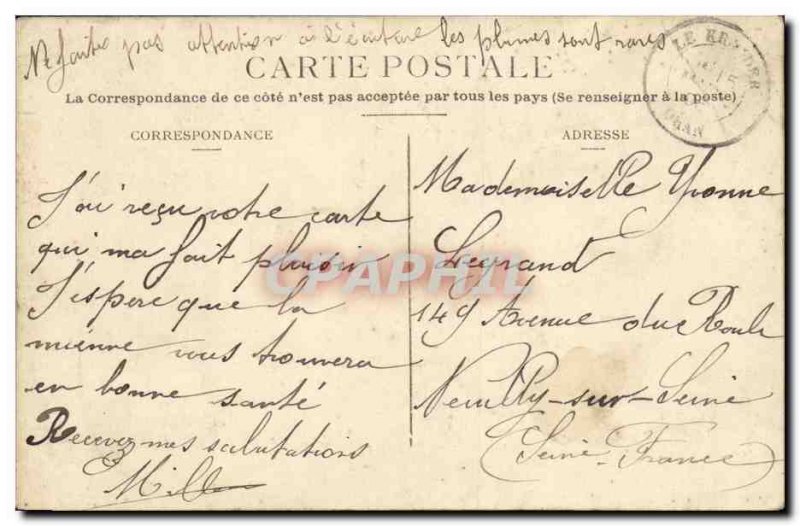 Ne faites pas attention à l'écriture les plumes sont rares
CARTE POSTALE
La Correspondance de ce côté n'est pas acceptée par tous les pays (Se renseigner à la poste)
CORRESPONDANCE
J'ai reçu votre carte
qui ma fait plaisir
J'espère que la
mienne vous trouvera
en bonne santé
Recevez mes salutations
ADRESSE
Mademoiselle Yvonne
Legrand
149 Avenue du Roule
Neuilly-sur-Seine
(Seine-France)
LE KREIDER
ORAN
CPAPHIL